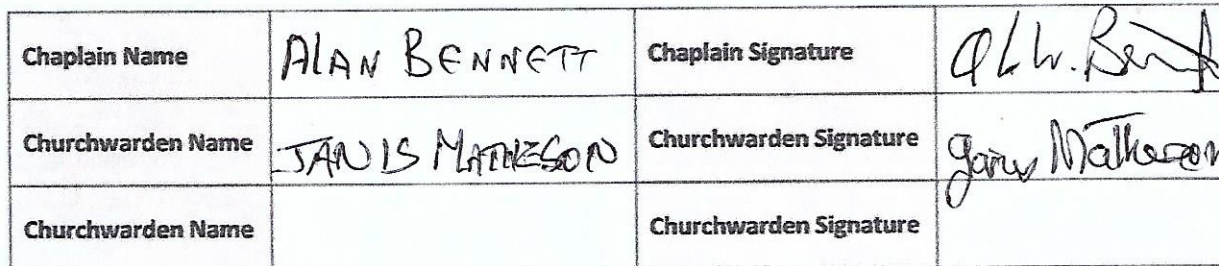 Chaplain Name ALAN BENNETT Chaplain Signature
Churchwarden Name JANIS MATHESON Churchwarden Signature Janis Matheson
Churchwarden Name Churchwarden Signature